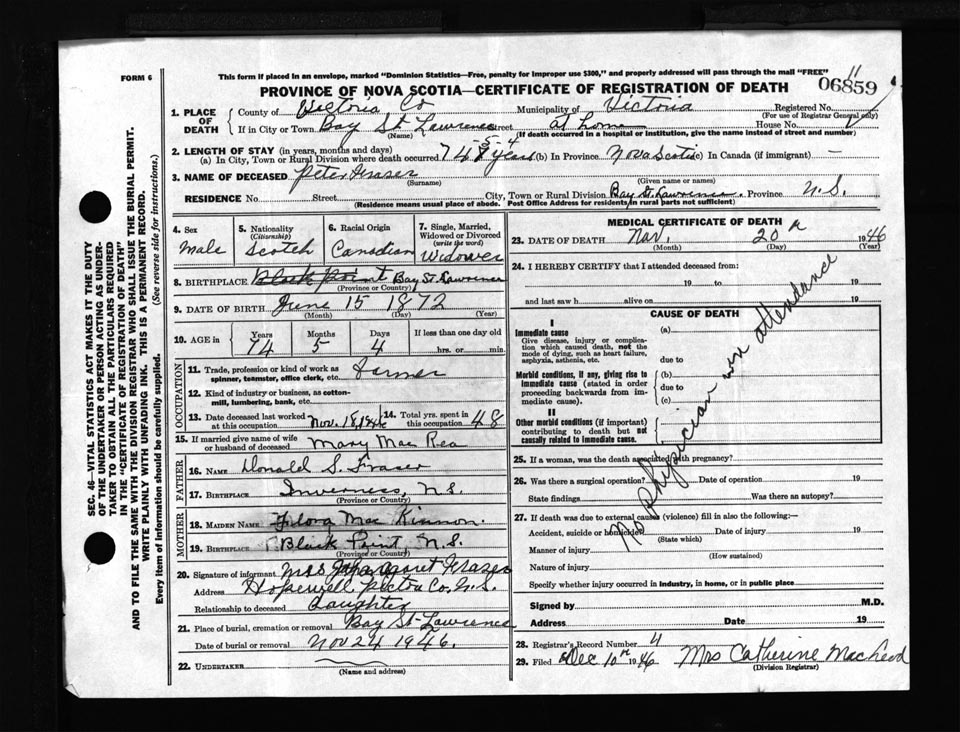 FORM 6
This form if placed in an envelope, marked "Dominion Statistics—Free, penalty for improper use $300," and properly addressed will pass through the mail "FREE"
11
06859
PROVINCE OF NOVA SCOTIA—CERTIFICATE OF REGISTRATION OF DEATH
1. PLACE OF DEATH
County of Victoria Co Municipality of Victoria Registered No.
(For use of Registrar General only)
If in City or Town Bay St Lawrence Street at home House No.
(Name) (If death occurred in a hospital or institution, give the name instead of street and number)
2. LENGTH OF STAY (in years, months and days)
(a) In City, Town or Rural Division where death occurred 74 years 5-4 (b) In Province Nova Scotia (c) In Canada (if immigrant) —
3. NAME OF DECEASED Peter Fraser
(Surname) (Given name or names)
RESIDENCE No. Street City, Town or Rural Division Bay St. Lawrence. Province N.S.
(Residence means usual place of abode. Post Office Address for residents in rural parts not sufficient)
4. Sex
Male
5. Nationality (Citizenship)
Scotch
6. Racial Origin
Canadian
7. Single, Married, Widowed or Divorced (write the word)
Widower
8. BIRTHPLACE Black Point Bay St. Lawrence
(Province or Country)
9. DATE OF BIRTH June 15 1872
(Month) (Day) (Year)
10. AGE in
Years Months Days If less than one day old
74 5 4 hrs. or min.
OCCUPATION
11. Trade, profession or kind of work as spinner, teamster, office clerk, etc. Farmer
12. Kind of industry or business, as cotton-mill, lumbering, bank, etc.
13. Date deceased last worked at this occupation Nov. 18, 1946
14. Total yrs. spent in this occupation 48
15. If married give name of wife or husband of deceased Mary Mac Rea
FATHER
16. NAME Donald S. Fraser
17. BIRTHPLACE Inverness, N.S.
(Province or Country)
MOTHER
18. MAIDEN NAME Flora Mac Kinnon.
19. BIRTHPLACE Black Point N.S.
(Province or Country)
20. Signature of informant Mrs Margaret Fraser
Address Hopewell Pictou Co. N.S.
Relationship to deceased Daughter
21. Place of burial, cremation or removal Bay St-Lawrence
Date of burial or removal Nov 24 1946.
22. UNDERTAKER
(Name and address)
MEDICAL CERTIFICATE OF DEATH
23. DATE OF DEATH Nov. 20 1946
(Month) (Day) (Year)
24. I HEREBY CERTIFY that I attended deceased from:
19 to 19
and last saw h alive on 19
CAUSE OF DEATH
I
Immediate cause (a)
Give disease, injury or complication which caused death, not the mode of dying, such as heart failure, asphyxia, asthenia, etc.
due to
Morbid conditions, if any, giving rise to immediate cause (stated in order proceeding backwards from immediate cause).
(b)
due to
(c)
II
Other morbid conditions (if important) contributing to death but not causally related to immediate cause.
No Physician in attendance
25. If a woman, was the death associated with pregnancy?
26. Was there a surgical operation? Date of operation 19
State findings Was there an autopsy?
27. If death was due to external causes (violence) fill in also the following:—
Accident, suicide or homicide? Date of injury 19
(State which)
Manner of injury
(How sustained)
Nature of injury
Specify whether injury occurred in industry, in home, or in public place
Signed by M.D.
Address Date 19
28. Registrar's Record Number 4
29. Filed Dec 10th 1946 Mrs Catherine MacLeod
(Division Registrar)
SEC. 46—VITAL STATISTICS ACT MAKES IT THE DUTY
OF THE UNDERTAKER OR PERSON ACTING AS UNDERTAKER
TO OBTAIN ALL THE PARTICULARS REQUIRED
IN THE "CERTIFICATE OF REGISTRATION OF DEATH"
AND TO FILE THE SAME WITH THE DIVISION REGISTRAR WHO SHALL ISSUE THE BURIAL PERMIT.
WRITE PLAINLY WITH UNFADING INK. THIS IS A PERMANENT RECORD.
Every item of information should be carefully supplied. (See reverse side for instructions.)